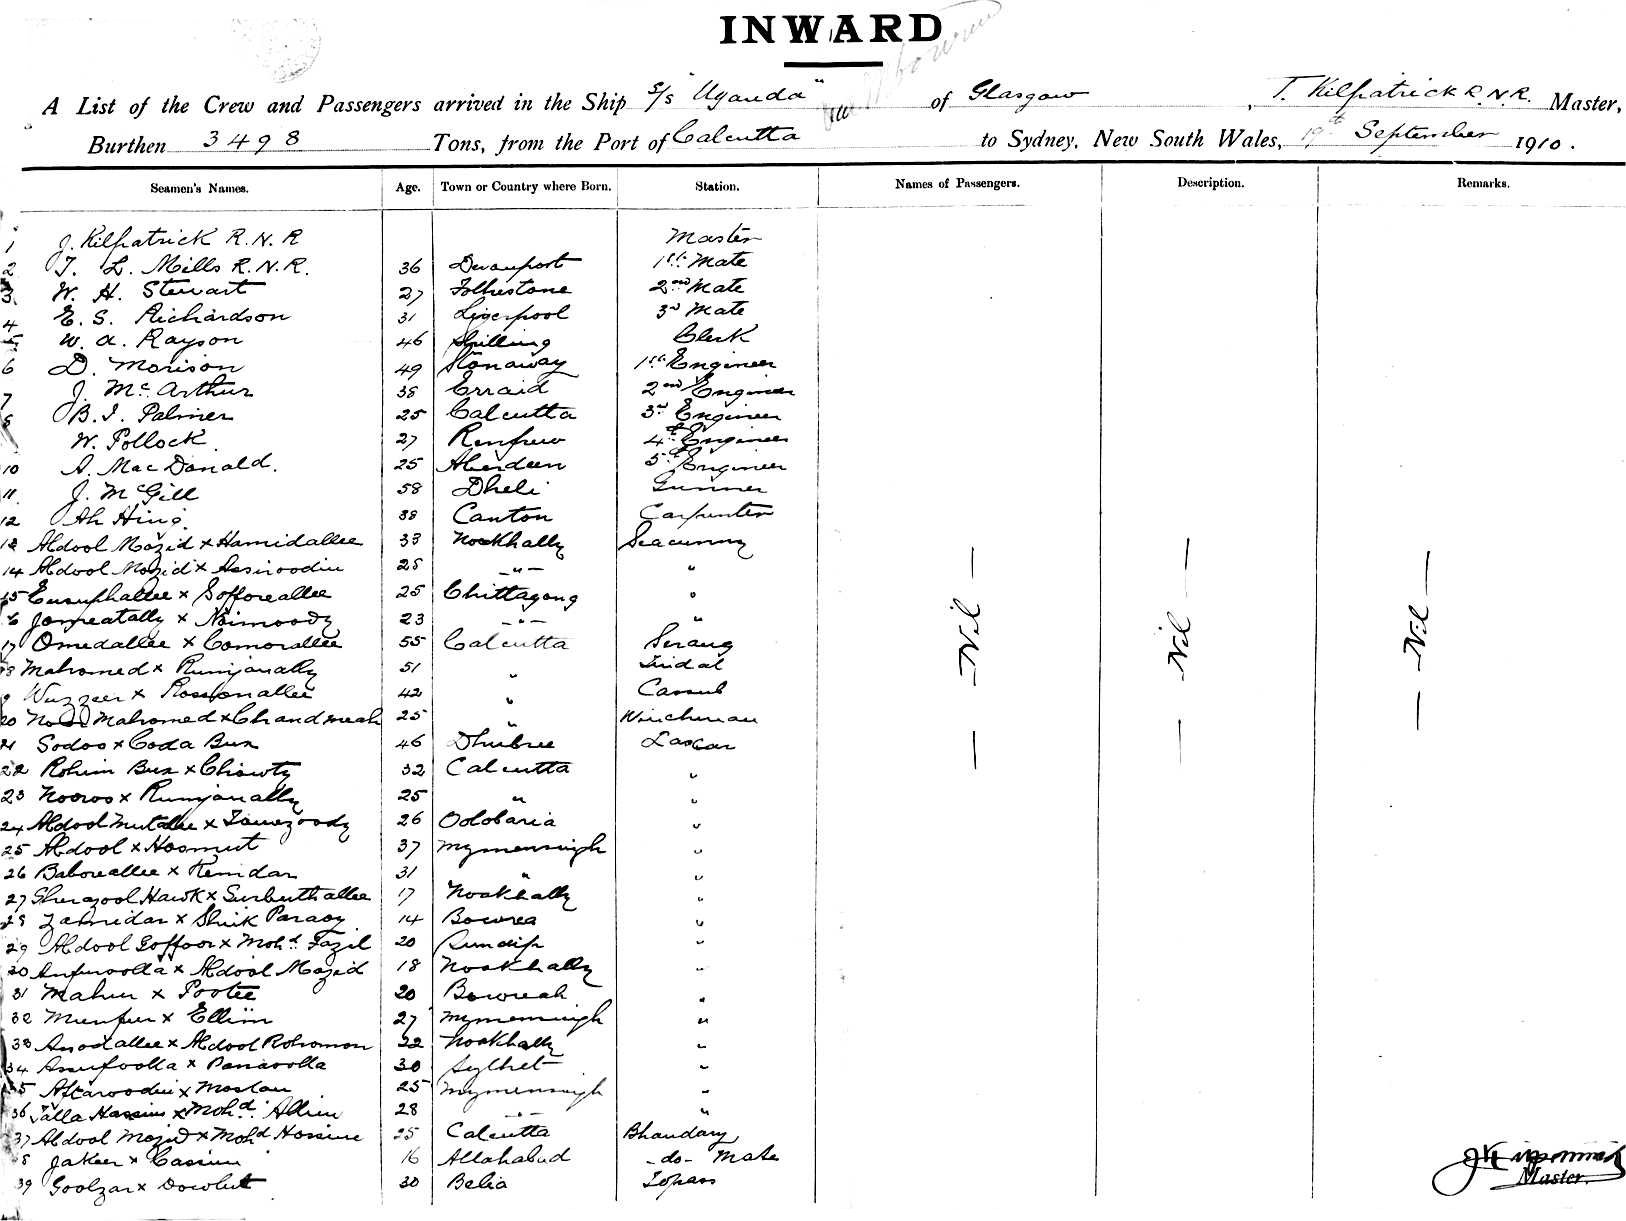 INWARD
A List of the Crew and Passengers arrived in the Ship S/s "Uganda" of Glasgow, J. Kilpatrick R.N.R. Master,
Burthen 3498 Tons, from the Port of Calcutta to Sydney, New South Wales, 19th September 1910.
Seamen's Names. Age. Town or Country where Born. Station. Names of Passengers. Description. Remarks.
1 J. Kilpatrick R.N.R Master
2 T. L. Mills R.N.R. 36 Devonport 1st Mate
3. W. H. Stewart 27 Folkestone 2nd Mate
4 E. S. Richardson 31 Liverpool 3rd Mate
5 W. A. Rayson 46 Clerk
6 D. Morison 49 Stonaway 1st Engineer
7 J. McArthur 38 Erraid 2nd Engineer
8 B. I. Palmer 25 Calcutta 3rd Engineer
W. Pollock. 27 Renfrew 4th Engineer
10 A. MacDonald. 25 Aberdeen 5th Engineer
11 J. McGill 58 Dheli Gunner
12 Ah Hing. 38 Canton Carpenter
13 Abdool Mozid x Hamidallee 33 Noakhally Seacunny
14 Abdool Mozid x 28 -"- "
15 Eusuphallee x Sofforeallee 25 Chittagong "
16 Jomeatally x Naimoody 23 -"- "
17 Omedallee x Comorallee 55 Calcutta Serang
18 Mahomed x Rumjanally 51 " Tindal
9 Wuzzeer x Rossonallee 42 " Cassub
20 Mahomed x Chandmeah 25 " Winchman
21 Sodoo x Coda Bux 46 Dhubree Lascar
22 Rohim Bux x Chowty 32 Calcutta "
23 Nooroo x Rumjanally 25 " "
24 Abdool Mutallee x 26 Odobaria "
25 Abdool x Hosmut 37 Mymensingh "
26 Baboreallee x Kemdar 31 " "
27 Hawk x Surbuthallee 17 Noakhally "
28 Zamidar x Shik Paraoy 14 Bowrea "
29 Abdool Goffoor x Mohd. Fazil 20 Sundip "
30 x Abdool Mozid 18 Noakhally "
31 x Pootee 20 Bowreah "
32 x Ellim 27 Mymensingh "
33 x Abdool Rohomon 22 Noakhally "
34 x Panaoolla 30 Sylhet "
35 Aftaroodin x Moslan 25 Mymensingh "
36 x Mohd. 28 -"- "
37 Abdool Mojid x Mohd Hossine 25 Calcutta Bhandary
8 Jakeer x Cassim 16 Allahabad -do- Mate
39 Goolzar x Dowlut 30 Belia Topass
— Nil —
— Nil —
— Nil —
Master.